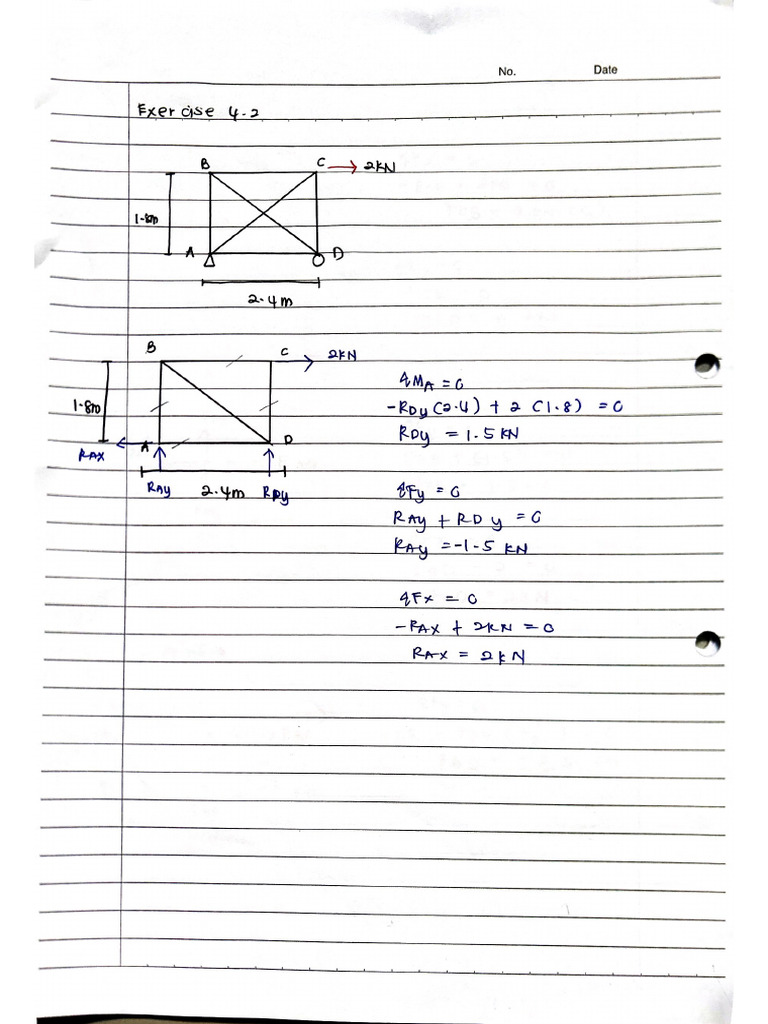 No. Date
Exercise 4.2
B C 2kN
1.8m
A D
2.4m
B C 2kN
1.8m
RAX A D
RAy 2.4m RDy
ΣMA = 0
-RDy (2.4) + 2 (1.8) = 0
RDy = 1.5 kN
ΣFy = 0
RAy + RDy = 0
RAy = -1.5 kN
ΣFx = 0
-RAX + 2kN = 0
RAX = 2kN